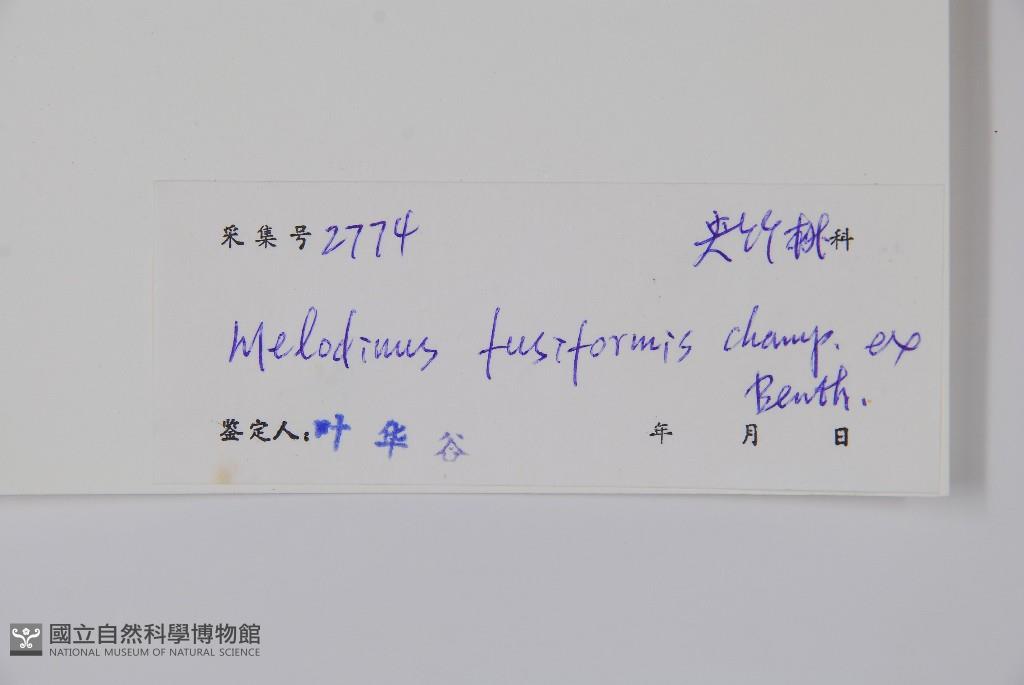 采集号 2774 夹竹桃科
Melodinus fusiformis champ. ex
Benth.
鉴定人：叶华谷 年 月 日
國立自然科學博物館
NATIONAL MUSEUM OF NATURAL SCIENCE